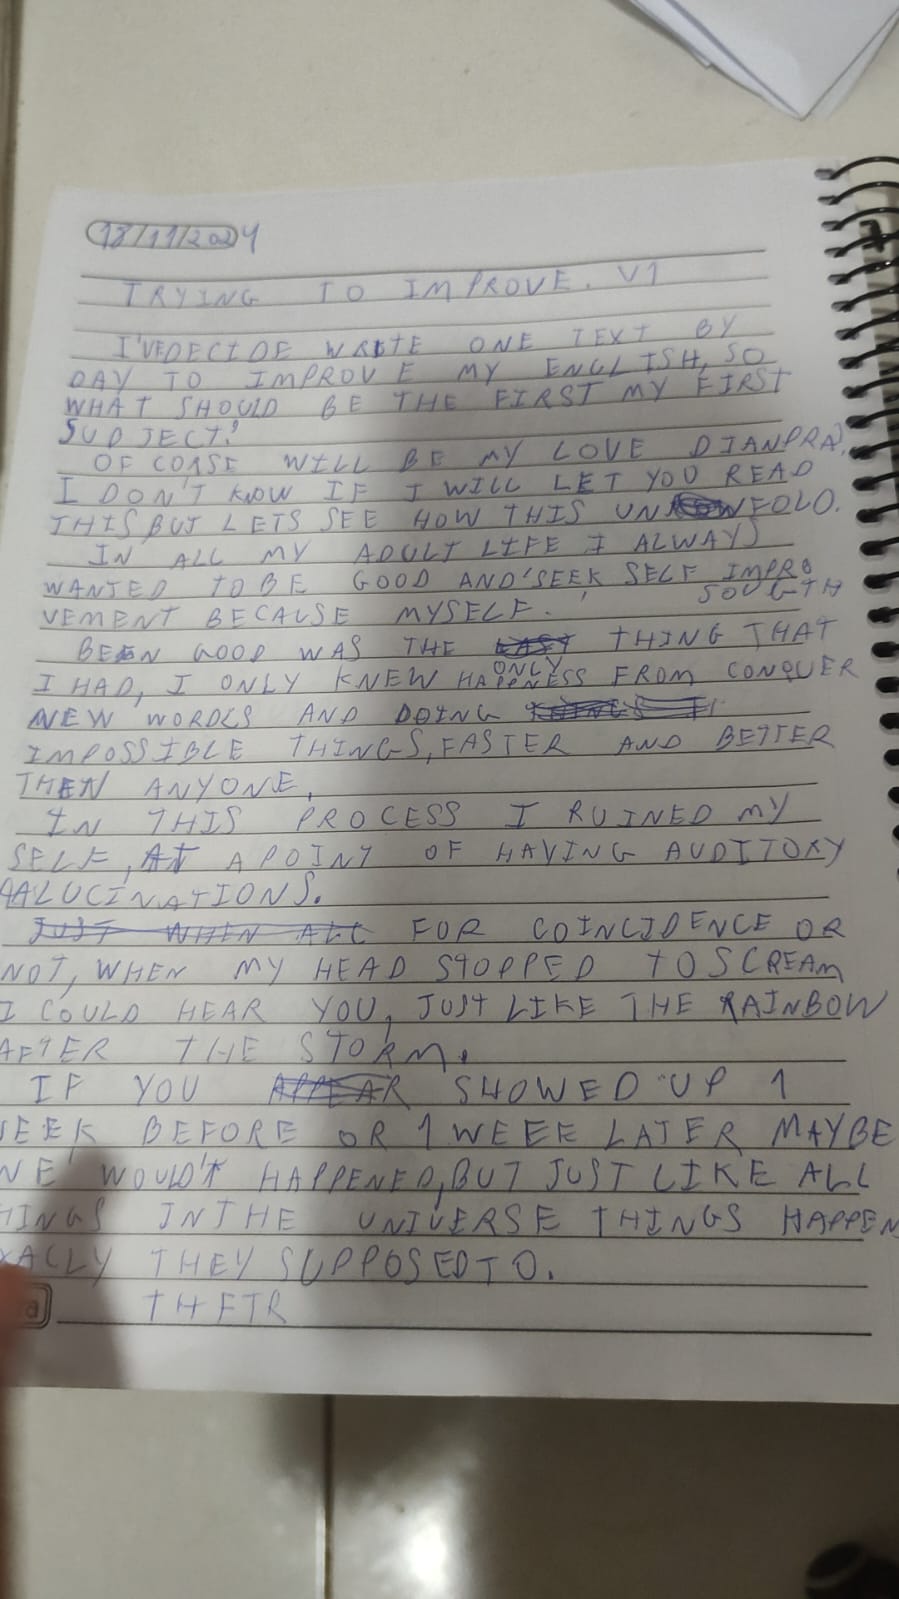 18/11/2024
TRYING TO IMPROVE. V1
I'VEDECIDE WRITE ONE TEXT BY
DAY TO IMPROVE MY ENGLISH, SO
WHAT SHOULD BE THE FIRST MY FIRST
SUBJECT?
OF CORSE WILL BE MY LOVE
I DON'T KNOW IF I WILL LET YOU READ
THIS BUT LETS SEE HOW THIS UNFOLD.
IN ALL MY ADULT LIFE I ALWAYS
WANTED TO BE GOOD AND SEEK SELF IMPRO
SOUGTH
VEMENT BECAUSE MYSELF.
BEEN GOOD WAS THE ONLY THING THAT
I HAD, I ONLY KNEW HAPPNESS FROM CONQUER
NEW WORDLS AND DOING
IMPOSSIBLE THINGS, FASTER AND BETTER
THEN ANYONE.
IN THIS PROCESS I RUINED MY
SELF, AT A POINT OF HAVING AUDITORY
HALUCINATIONS.
JUST WHEN ALL FOR COINCIDENCE OR
NOT, WHEN MY HEAD STOPPED TO SCREAM
I COULD HEAR YOU, JUST LIKE THE RAINBOW
AFTER THE STORM.
IF YOU APPEAR SHOWED UP 1
EEK BEFORE OR 1 WEEK LATER MAYBE
WOULD'T HAPPENED, BUT JUST LIKE ALL
HINGS IN THE UNIVERSE THINGS HAPPEN
XACLLY THEY SUPPOSED TO.